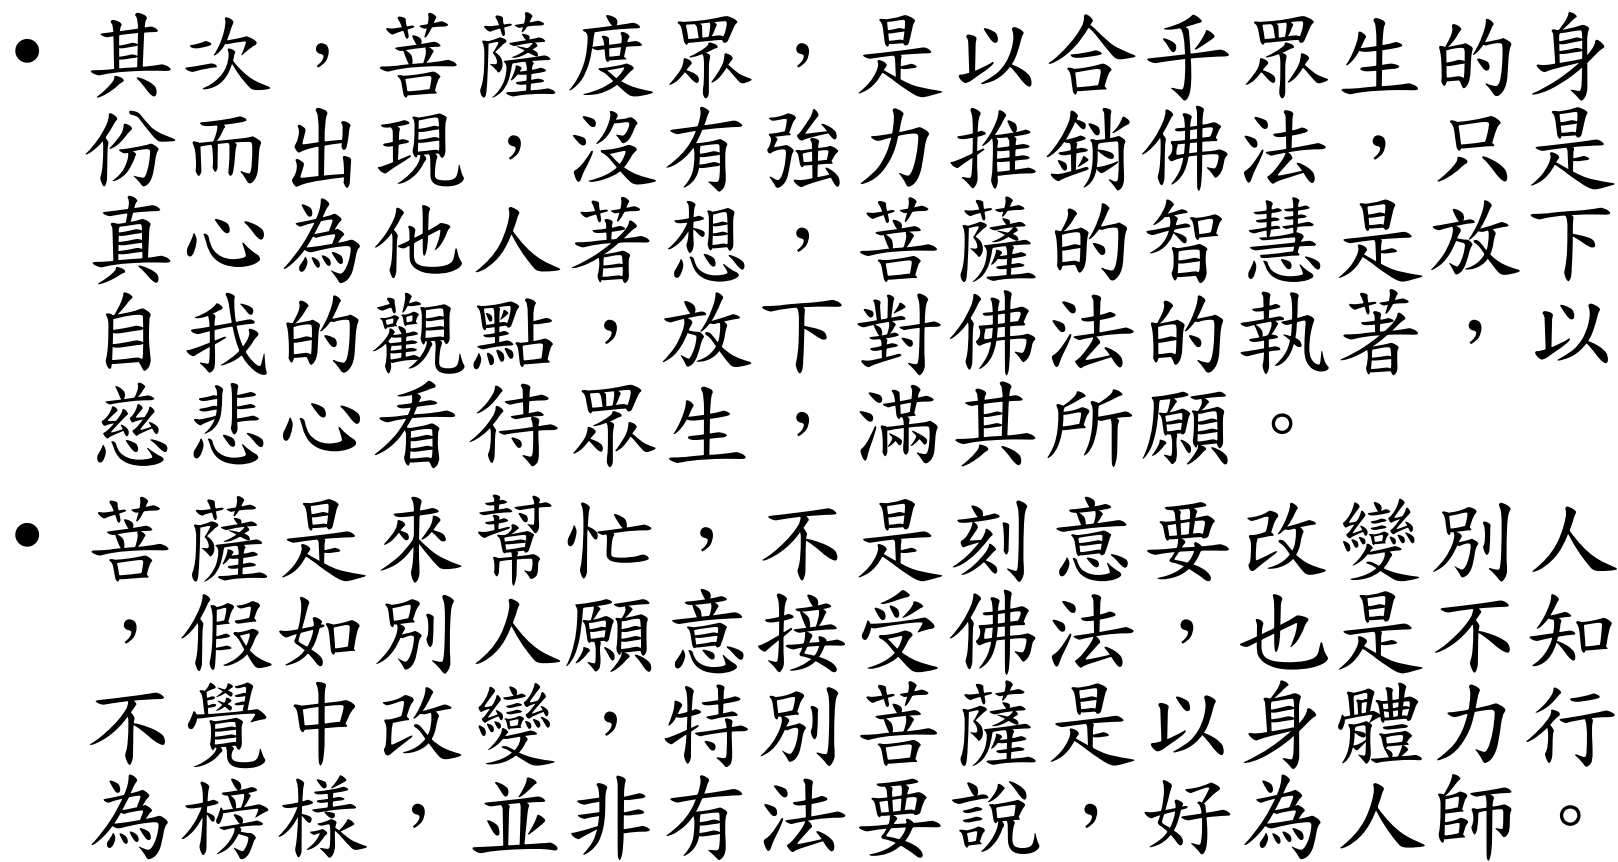 • 其次，菩薩度眾，是以合乎眾生的身
份而出現，沒有強力推銷佛法，只是
真心為他人著想，菩薩的智慧是放下
自我的觀點，放下對佛法的執著，以
慈悲心看待眾生，滿其所願。
• 菩薩是來幫忙，不是刻意要改變別人
，假如別人願意接受佛法，也是不知
不覺中改變，特別菩薩是以身體力行
為榜樣，並非有法要說，好為人師。